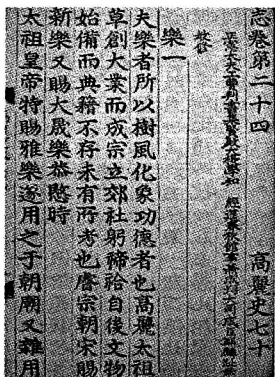 志卷第二十四　高麗史七十
正憲大夫工曹判書集賢殿大提學知　經筵春秋館事兼成均大司成臣鄭麟趾奉
敎修
樂一
夫樂者所以樹風化象功德者也高麗太祖
草創大業而成宗立郊社躬禘祫自後文物
始備而典籍不存未有所考也睿宗朝宋賜
新樂又賜大晟樂恭愍時
太祖皇帝特賜雅樂遂用之于朝廟又雜用